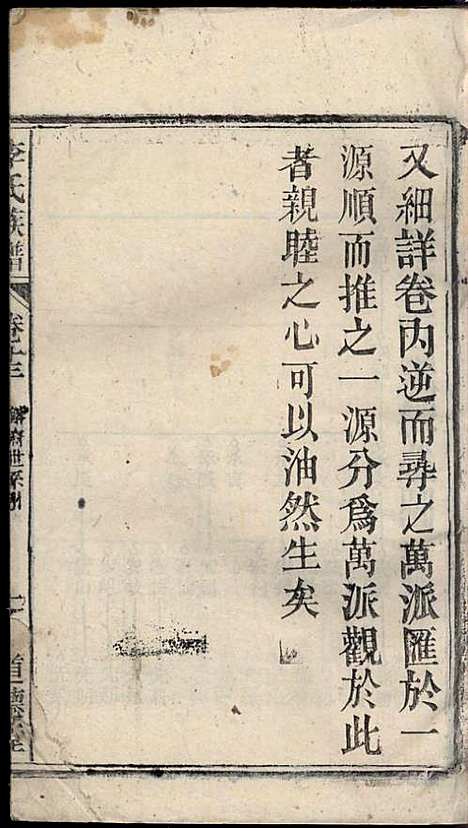 又細詳卷內逆而尋之萬派匯於一
源順而推之一源分爲萬派觀於此
者親睦之心可以油然生矣
李氏族譜
卷十三
世系
道德堂